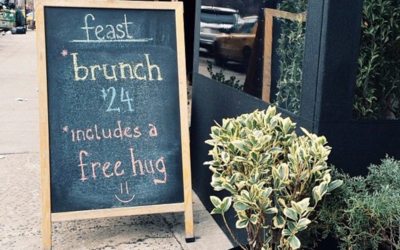 feast
*brunch
$24
*includes a
free hug